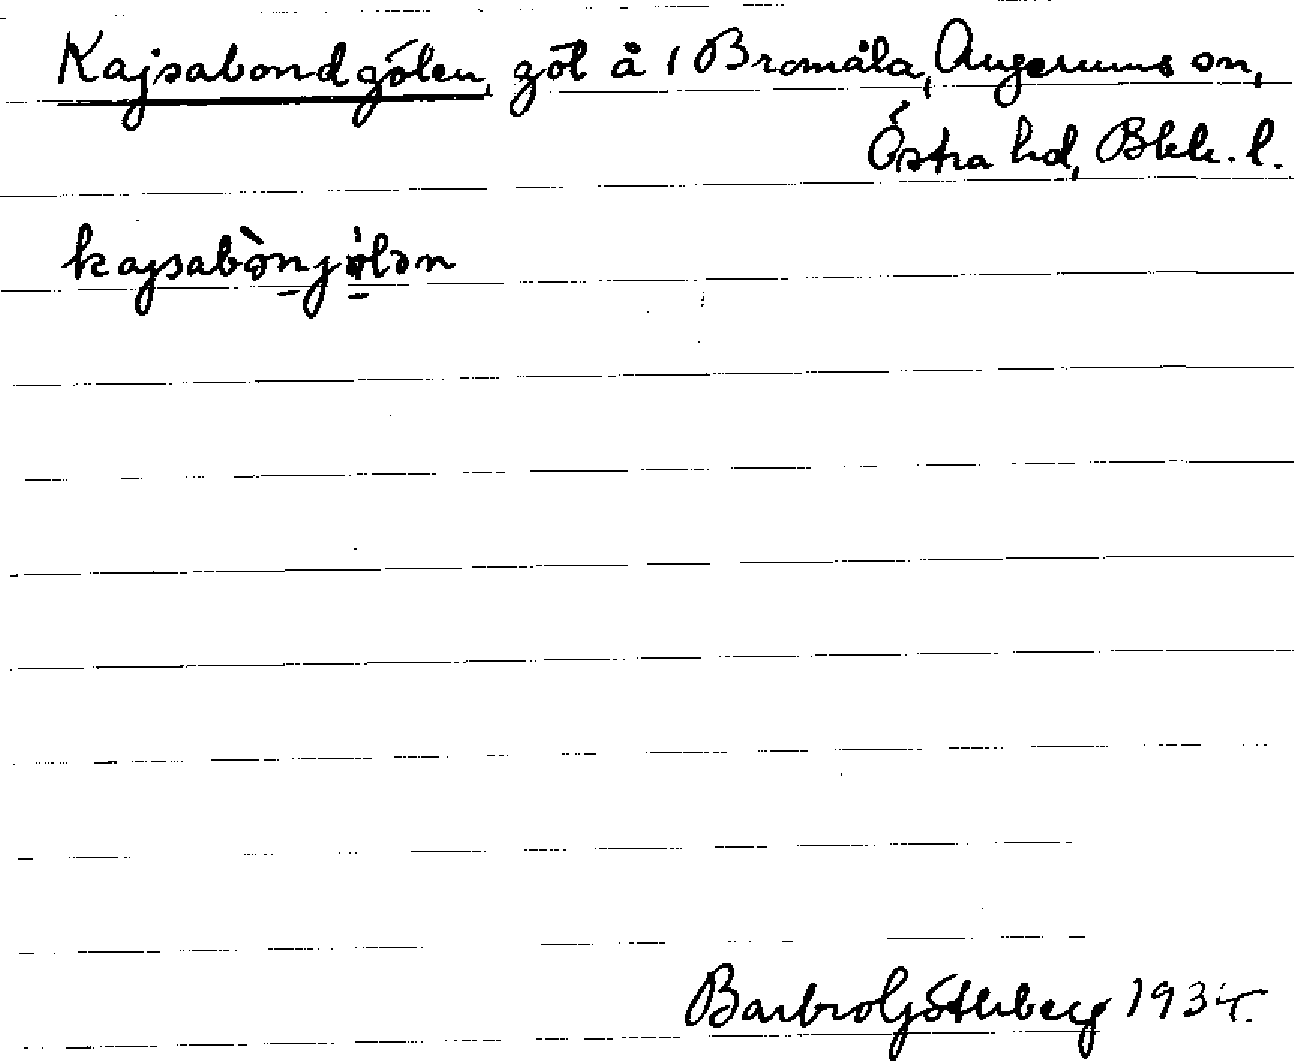 Kajsabondgölen, göl å i Bromåla, Augerums sn,
Östra hd, Blek. l.
kajsabònjölən
Barbro Götherberg 1935.